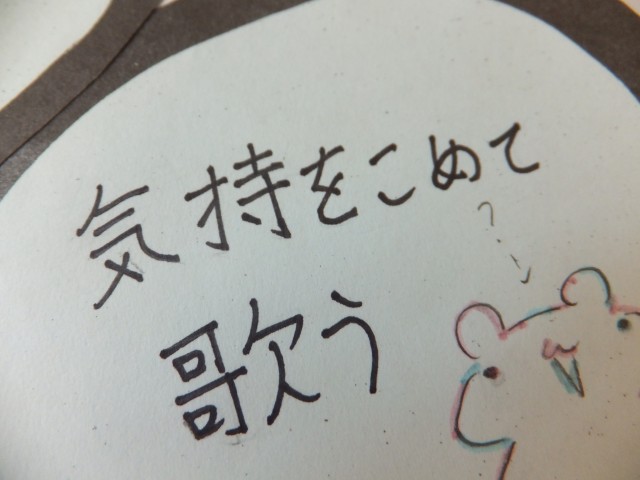 気持をこめて
歌う